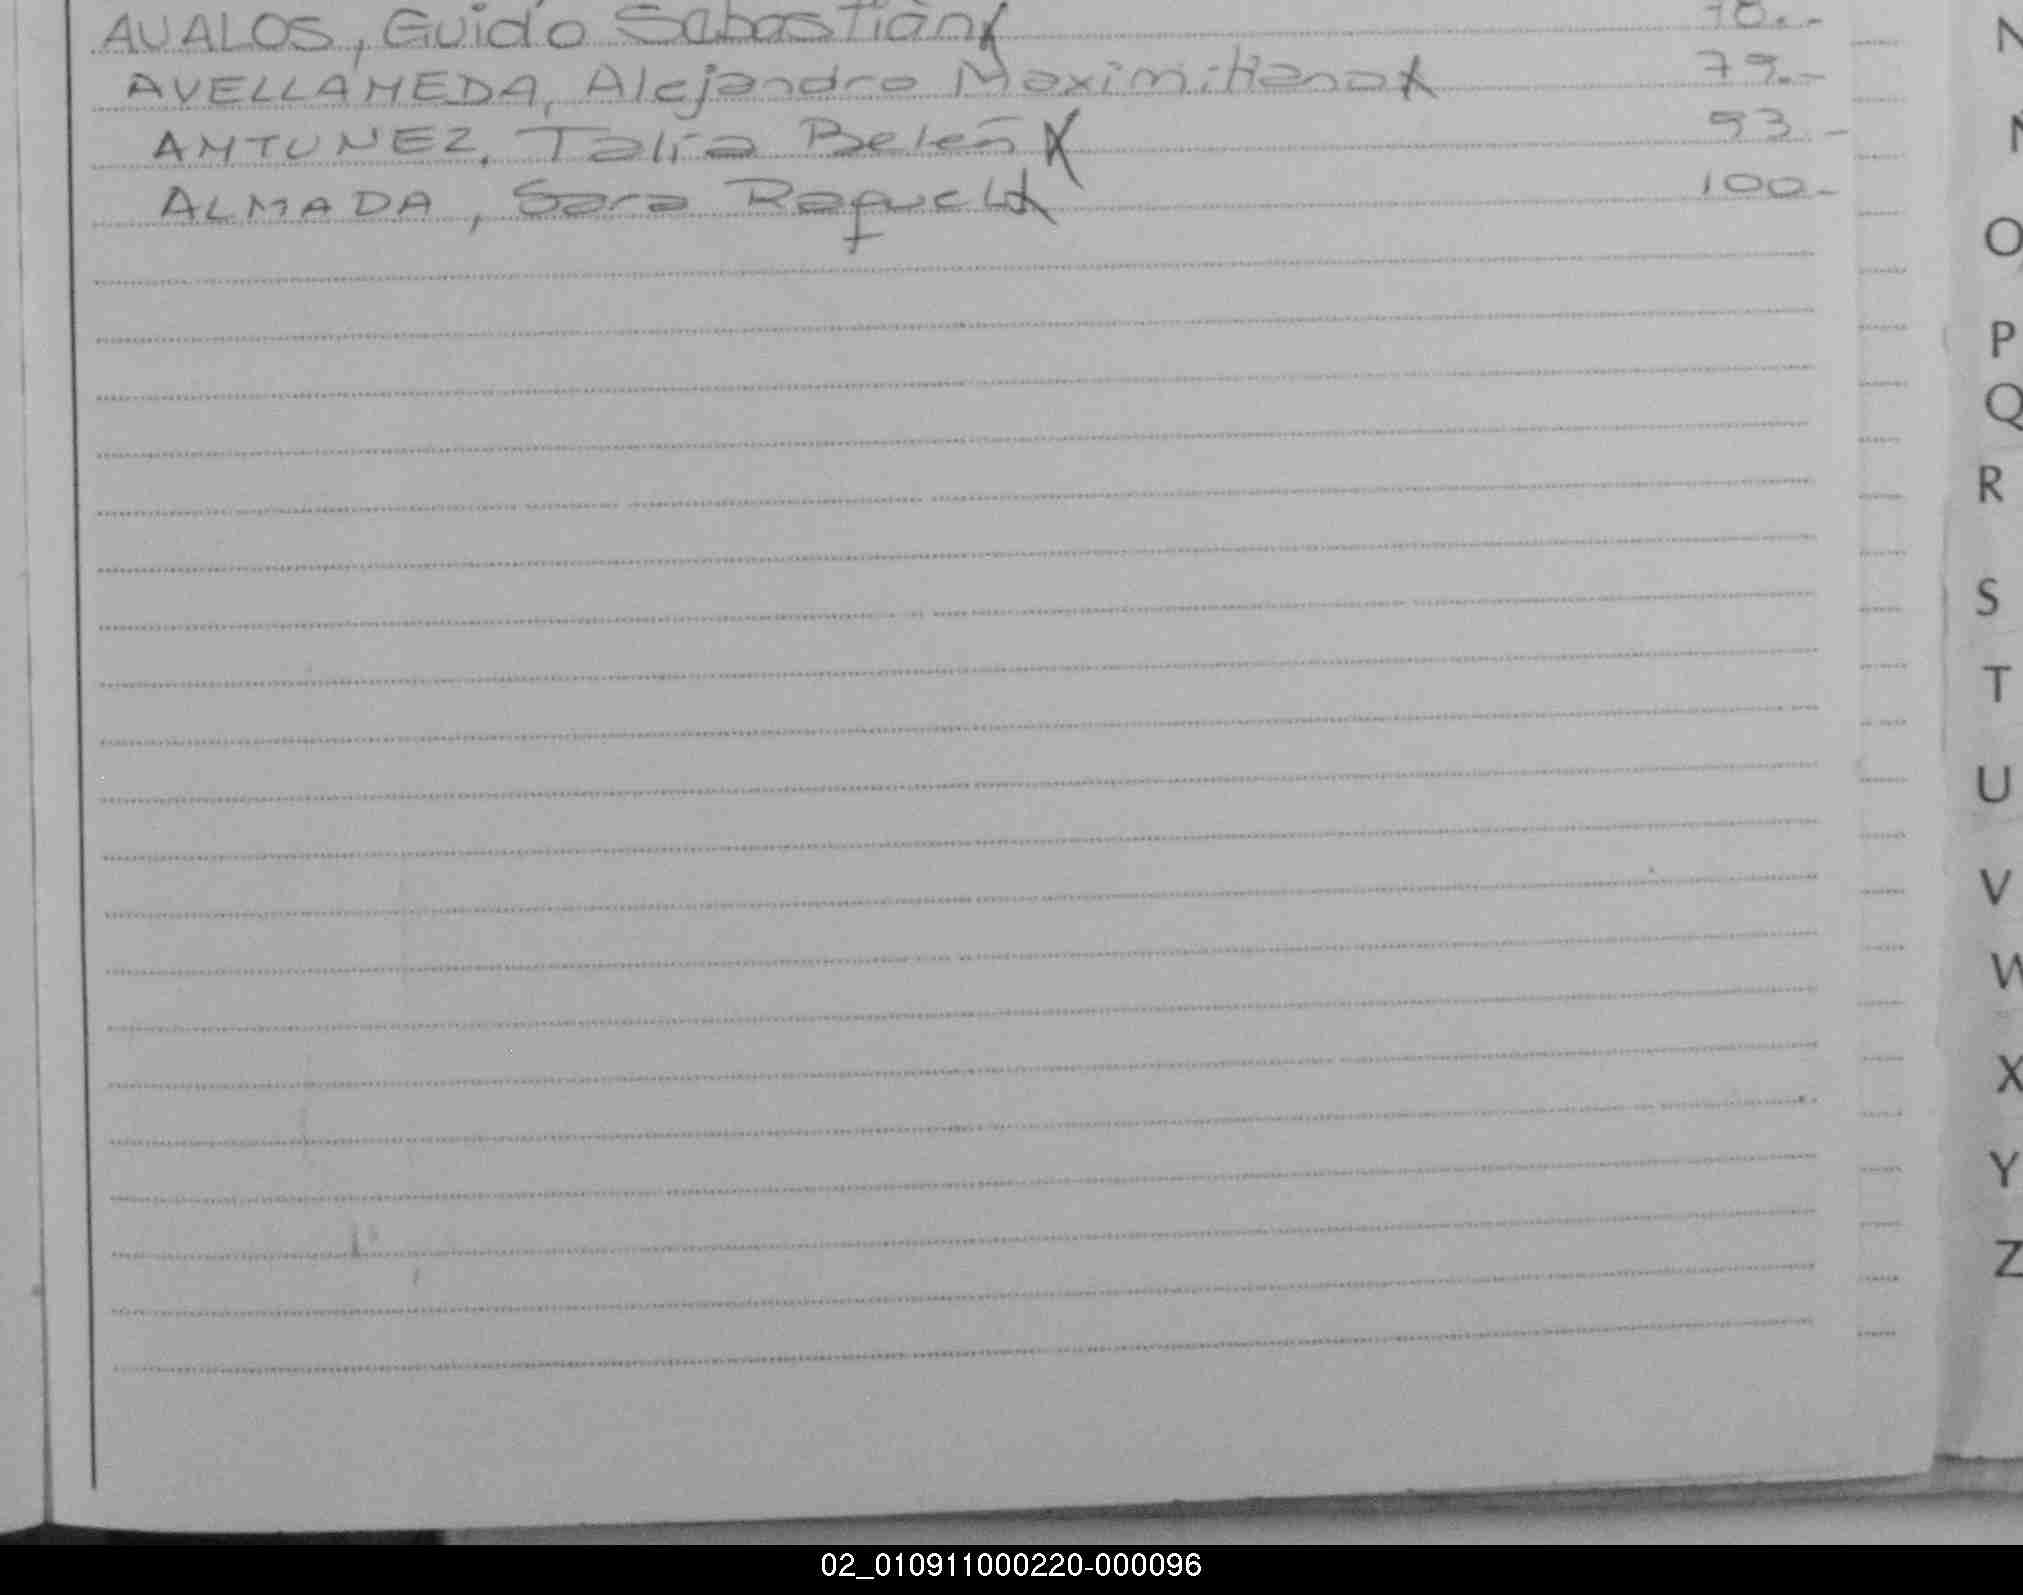 AVALOS, Guido Sebastián 78.-
AVELLANEDA, Alejandro Maximiliano 79.-
ANTUNEZ, Talía Belén 93.-
ALMADA, Sara Raquel 100.-
N
Ñ
O
P
Q
R
S
T
U
V
W
X
Y
Z
02_010911000220-000096